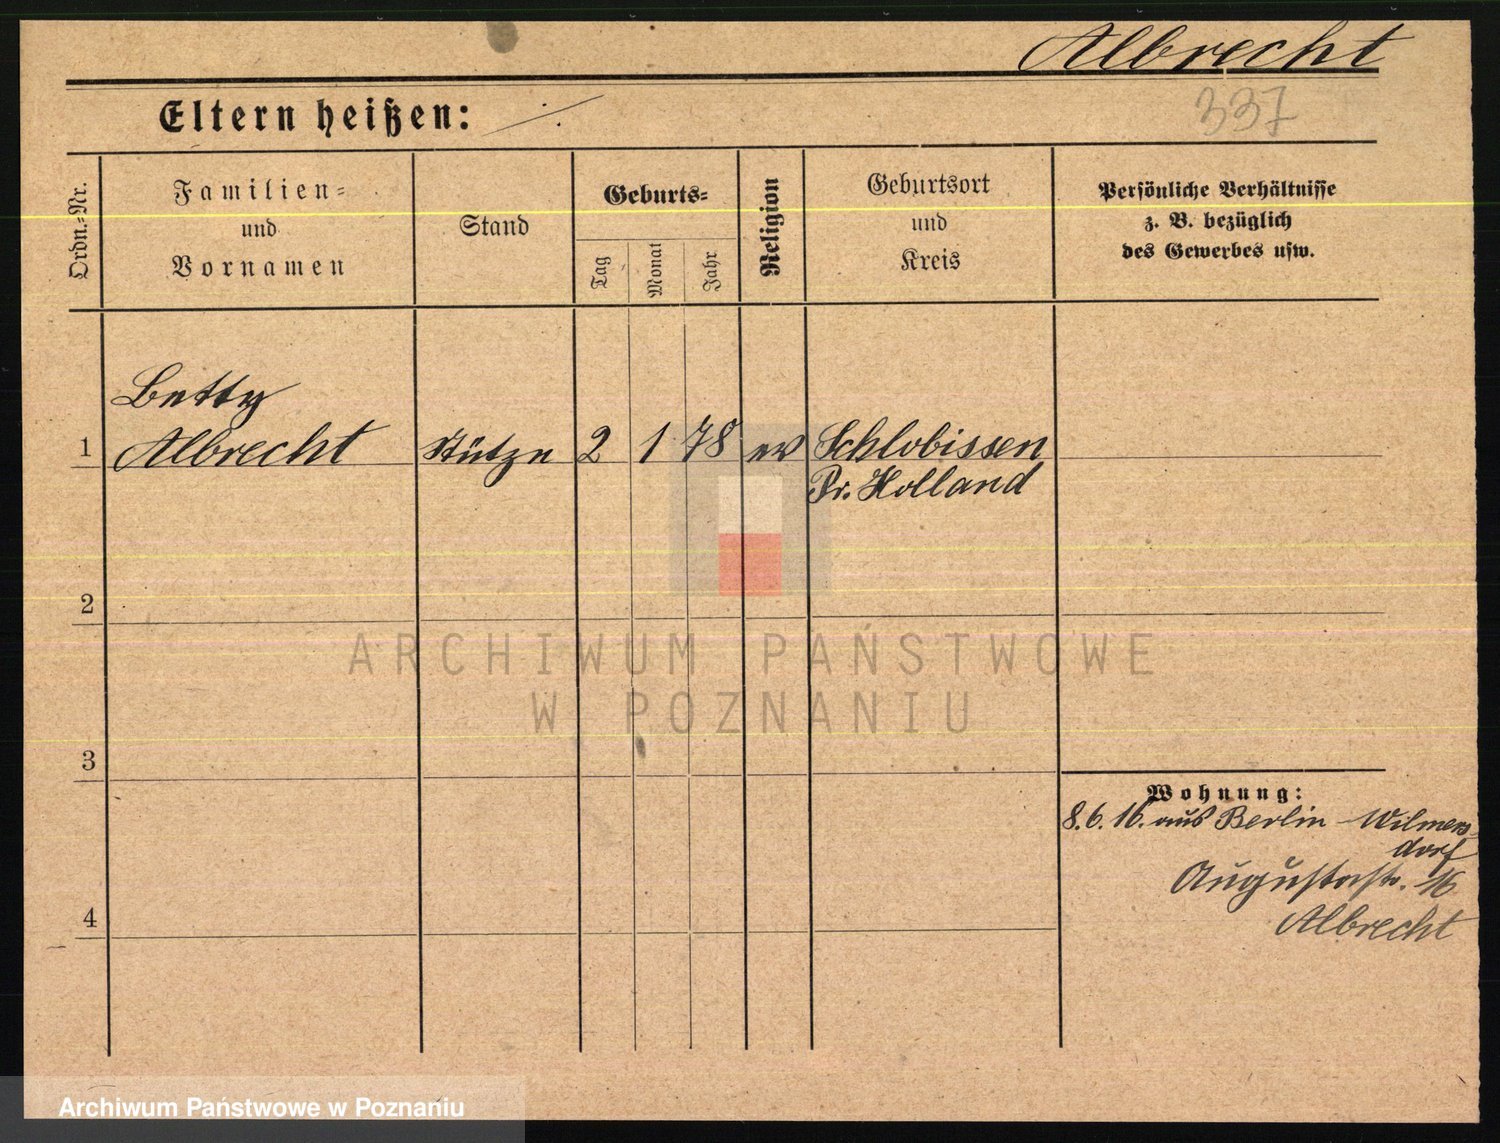 Albrecht
Eltern heißen: ./.
337
Ordn.-Nr.
Familien-
und
Vornamen
Stand
Geburts-
Tag
Monat
Jahr
Religion
Geburtsort
und
Kreis
Persönliche Verhältnisse
z. B. bezüglich
des Gewerbes usw.
Betty
1 Albrecht Stütze 2 1 78 ev Schlobissen
Pr. Holland
2
ARCHIWUM PAŃSTWOWE
W POZNANIU
3
Wohnung:
8.6.16. aus Berlin-Wilmers-
dorf
Augustastr. 16
4
Albrecht
Archiwum Państwowe w Poznaniu